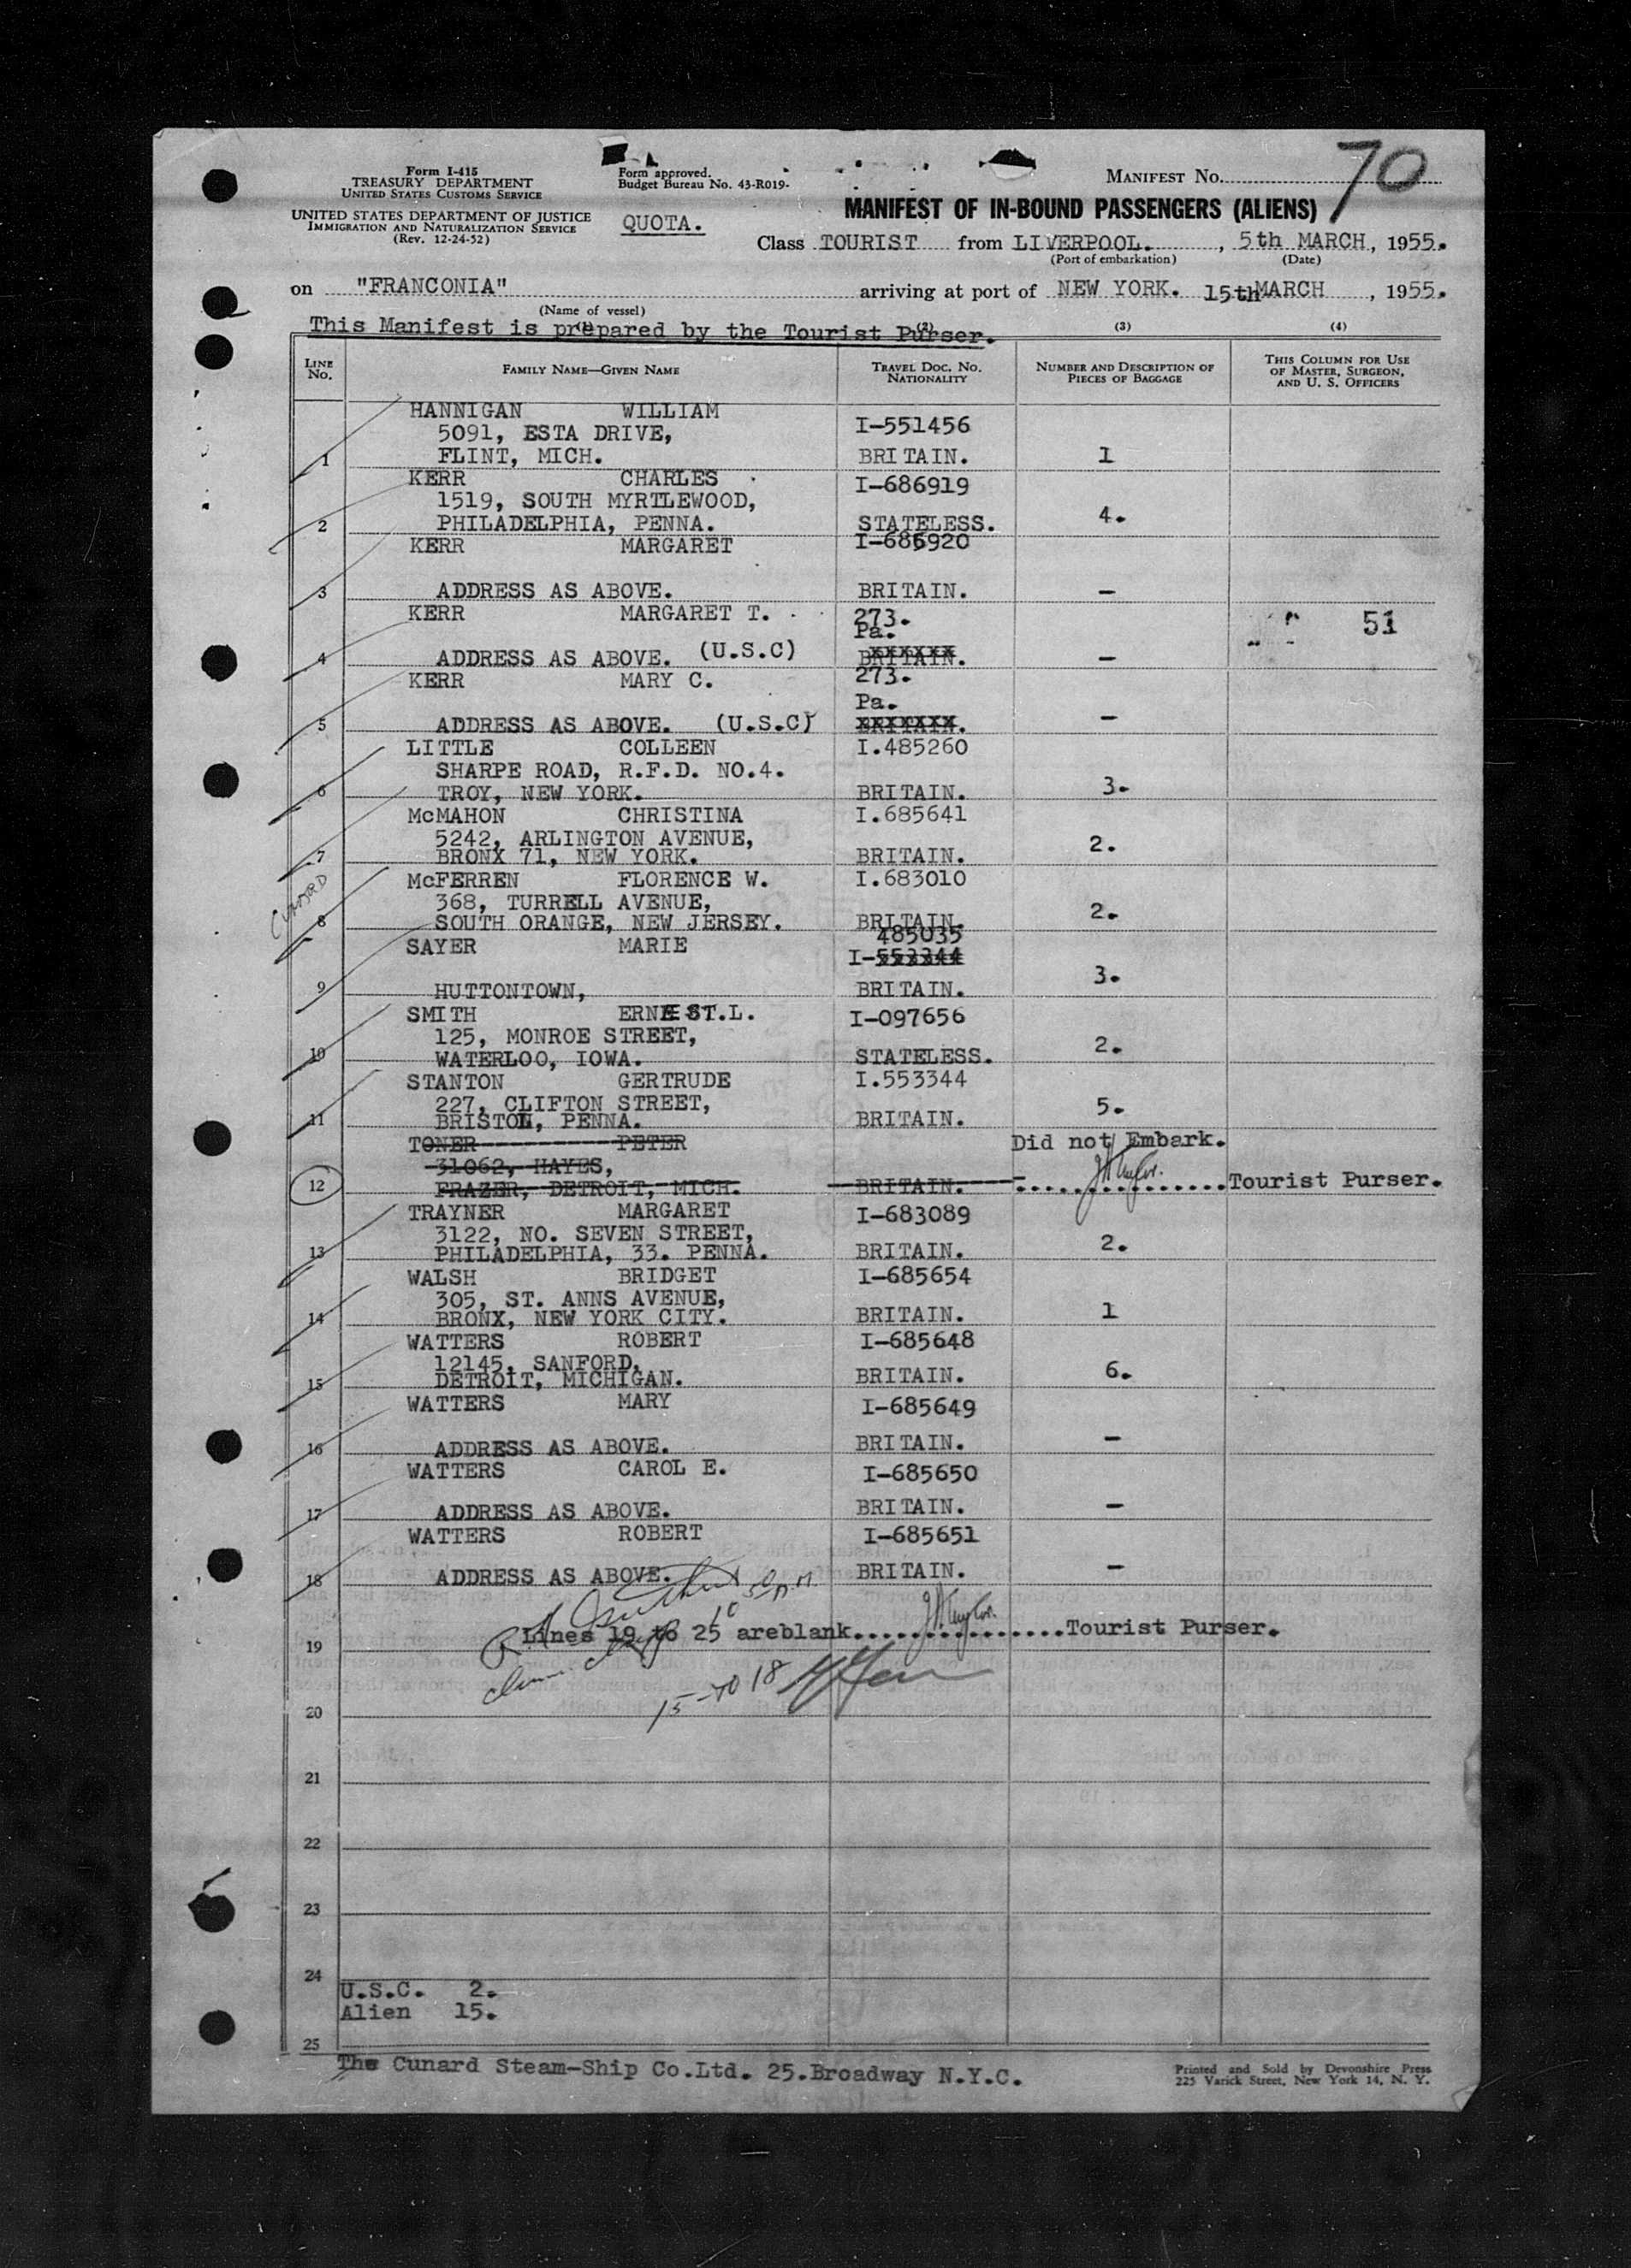 Form I-415
TREASURY DEPARTMENT
UNITED STATES CUSTOMS SERVICE
UNITED STATES DEPARTMENT OF JUSTICE
IMMIGRATION AND NATURALIZATION SERVICE
(Rev. 12-24-52)
Form approved.
Budget Bureau No. 43-R019-
QUOTA.
MANIFEST NO. 70
MANIFEST OF IN-BOUND PASSENGERS (ALIENS)
Class TOURIST from LIVERPOOL. , 5th MARCH, 1955.
(Port of embarkation) (Date)
on "FRANCONIA" arriving at port of NEW YORK. 15th MARCH , 1955.
(Name of vessel)
This Manifest is prepared by the Tourist Purser.
(2) (3) (4)
LINE No. FAMILY NAME—GIVEN NAME TRAVEL DOC. NO. NATIONALITY NUMBER AND DESCRIPTION OF PIECES OF BAGGAGE THIS COLUMN FOR USE OF MASTER, SURGEON, AND U. S. OFFICERS
HANNIGAN WILLIAM I-551456
5091, ESTA DRIVE,
1 FLINT, MICH. BRITAIN. 1
KERR CHARLES I-686919
1519, SOUTH MYRTLEWOOD,
2 PHILADELPHIA, PENNA. STATELESS. 4.
KERR MARGARET I-686920
3 ADDRESS AS ABOVE. BRITAIN. —
KERR MARGARET T. 273. 51
Pa.
4 ADDRESS AS ABOVE. (U.S.C) BRITAIN. —
KERR MARY C. 273.
Pa.
5 ADDRESS AS ABOVE. (U.S.C) BRITAIN. —
LITTLE COLLEEN I.485260
SHARPE ROAD, R.F.D. NO.4.
6 TROY, NEW YORK. BRITAIN. 3.
McMAHON CHRISTINA I.685641
5242, ARLINGTON AVENUE,
7 BRONX 71, NEW YORK. BRITAIN. 2.
McFERREN FLORENCE W. I.683010
368, TURRELL AVENUE,
8 SOUTH ORANGE, NEW JERSEY. BRITAIN. 2.
CUNARD
SAYER MARIE 485035
I-553344
9 HUTTONTOWN, BRITAIN. 3.
SMITH ERNEST.L. I-097656
125, MONROE STREET,
10 WATERLOO, IOWA. STATELESS. 2.
STANTON GERTRUDE I.553344
227, CLIFTON STREET,
11 BRISTOL, PENNA. BRITAIN. 5.
TONER PETER Did not Embark.
31062, HAYES,
12 FRAZER, DETROIT, MICH. BRITAIN. ...............Tourist Purser.
TRAYNER MARGARET I-683089
3122, NO. SEVEN STREET,
13 PHILADELPHIA, 33. PENNA. BRITAIN. 2.
WALSH BRIDGET I-685654
305, ST. ANNS AVENUE,
14 BRONX, NEW YORK CITY. BRITAIN. 1
WATTERS ROBERT I-685648
12145, SANFORD,
15 DETROIT, MICHIGAN. BRITAIN. 6.
WATTERS MARY I-685649
16 ADDRESS AS ABOVE. BRITAIN. —
WATTERS CAROL E. I-685650
17 ADDRESS AS ABOVE. BRITAIN. —
WATTERS ROBERT I-685651
18 ADDRESS AS ABOVE. BRITAIN. —
Lines 19 to 25 areblank................Tourist Purser.
19
15-TO 18
20
21
22
23
24
U.S.C. 2.
Alien 15.
25
The Cunard Steam-Ship Co.Ltd. 25.Broadway N.Y.C.
Printed and Sold by Devonshire Press
225 Varick Street, New York 14, N. Y.